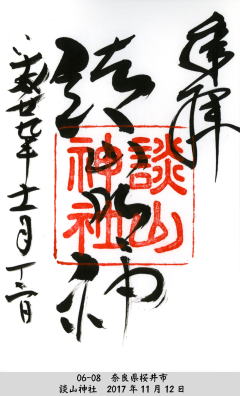 奉拝
平成廿九年十一月十二日
談山
神社
06-08　奈良県桜井市
談山神社　2017年11月12日